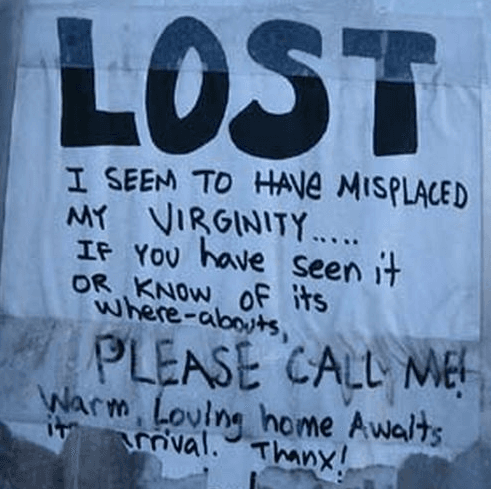 LOST
I SEEM TO HAVe MISPLACED
MY VIRGINITY.....
IF YOU have seen it
OR KNOW OF its
where-abouts,
PLEASE CALL ME!
Warm, Loving home Awaits
it arrival. Thanx!